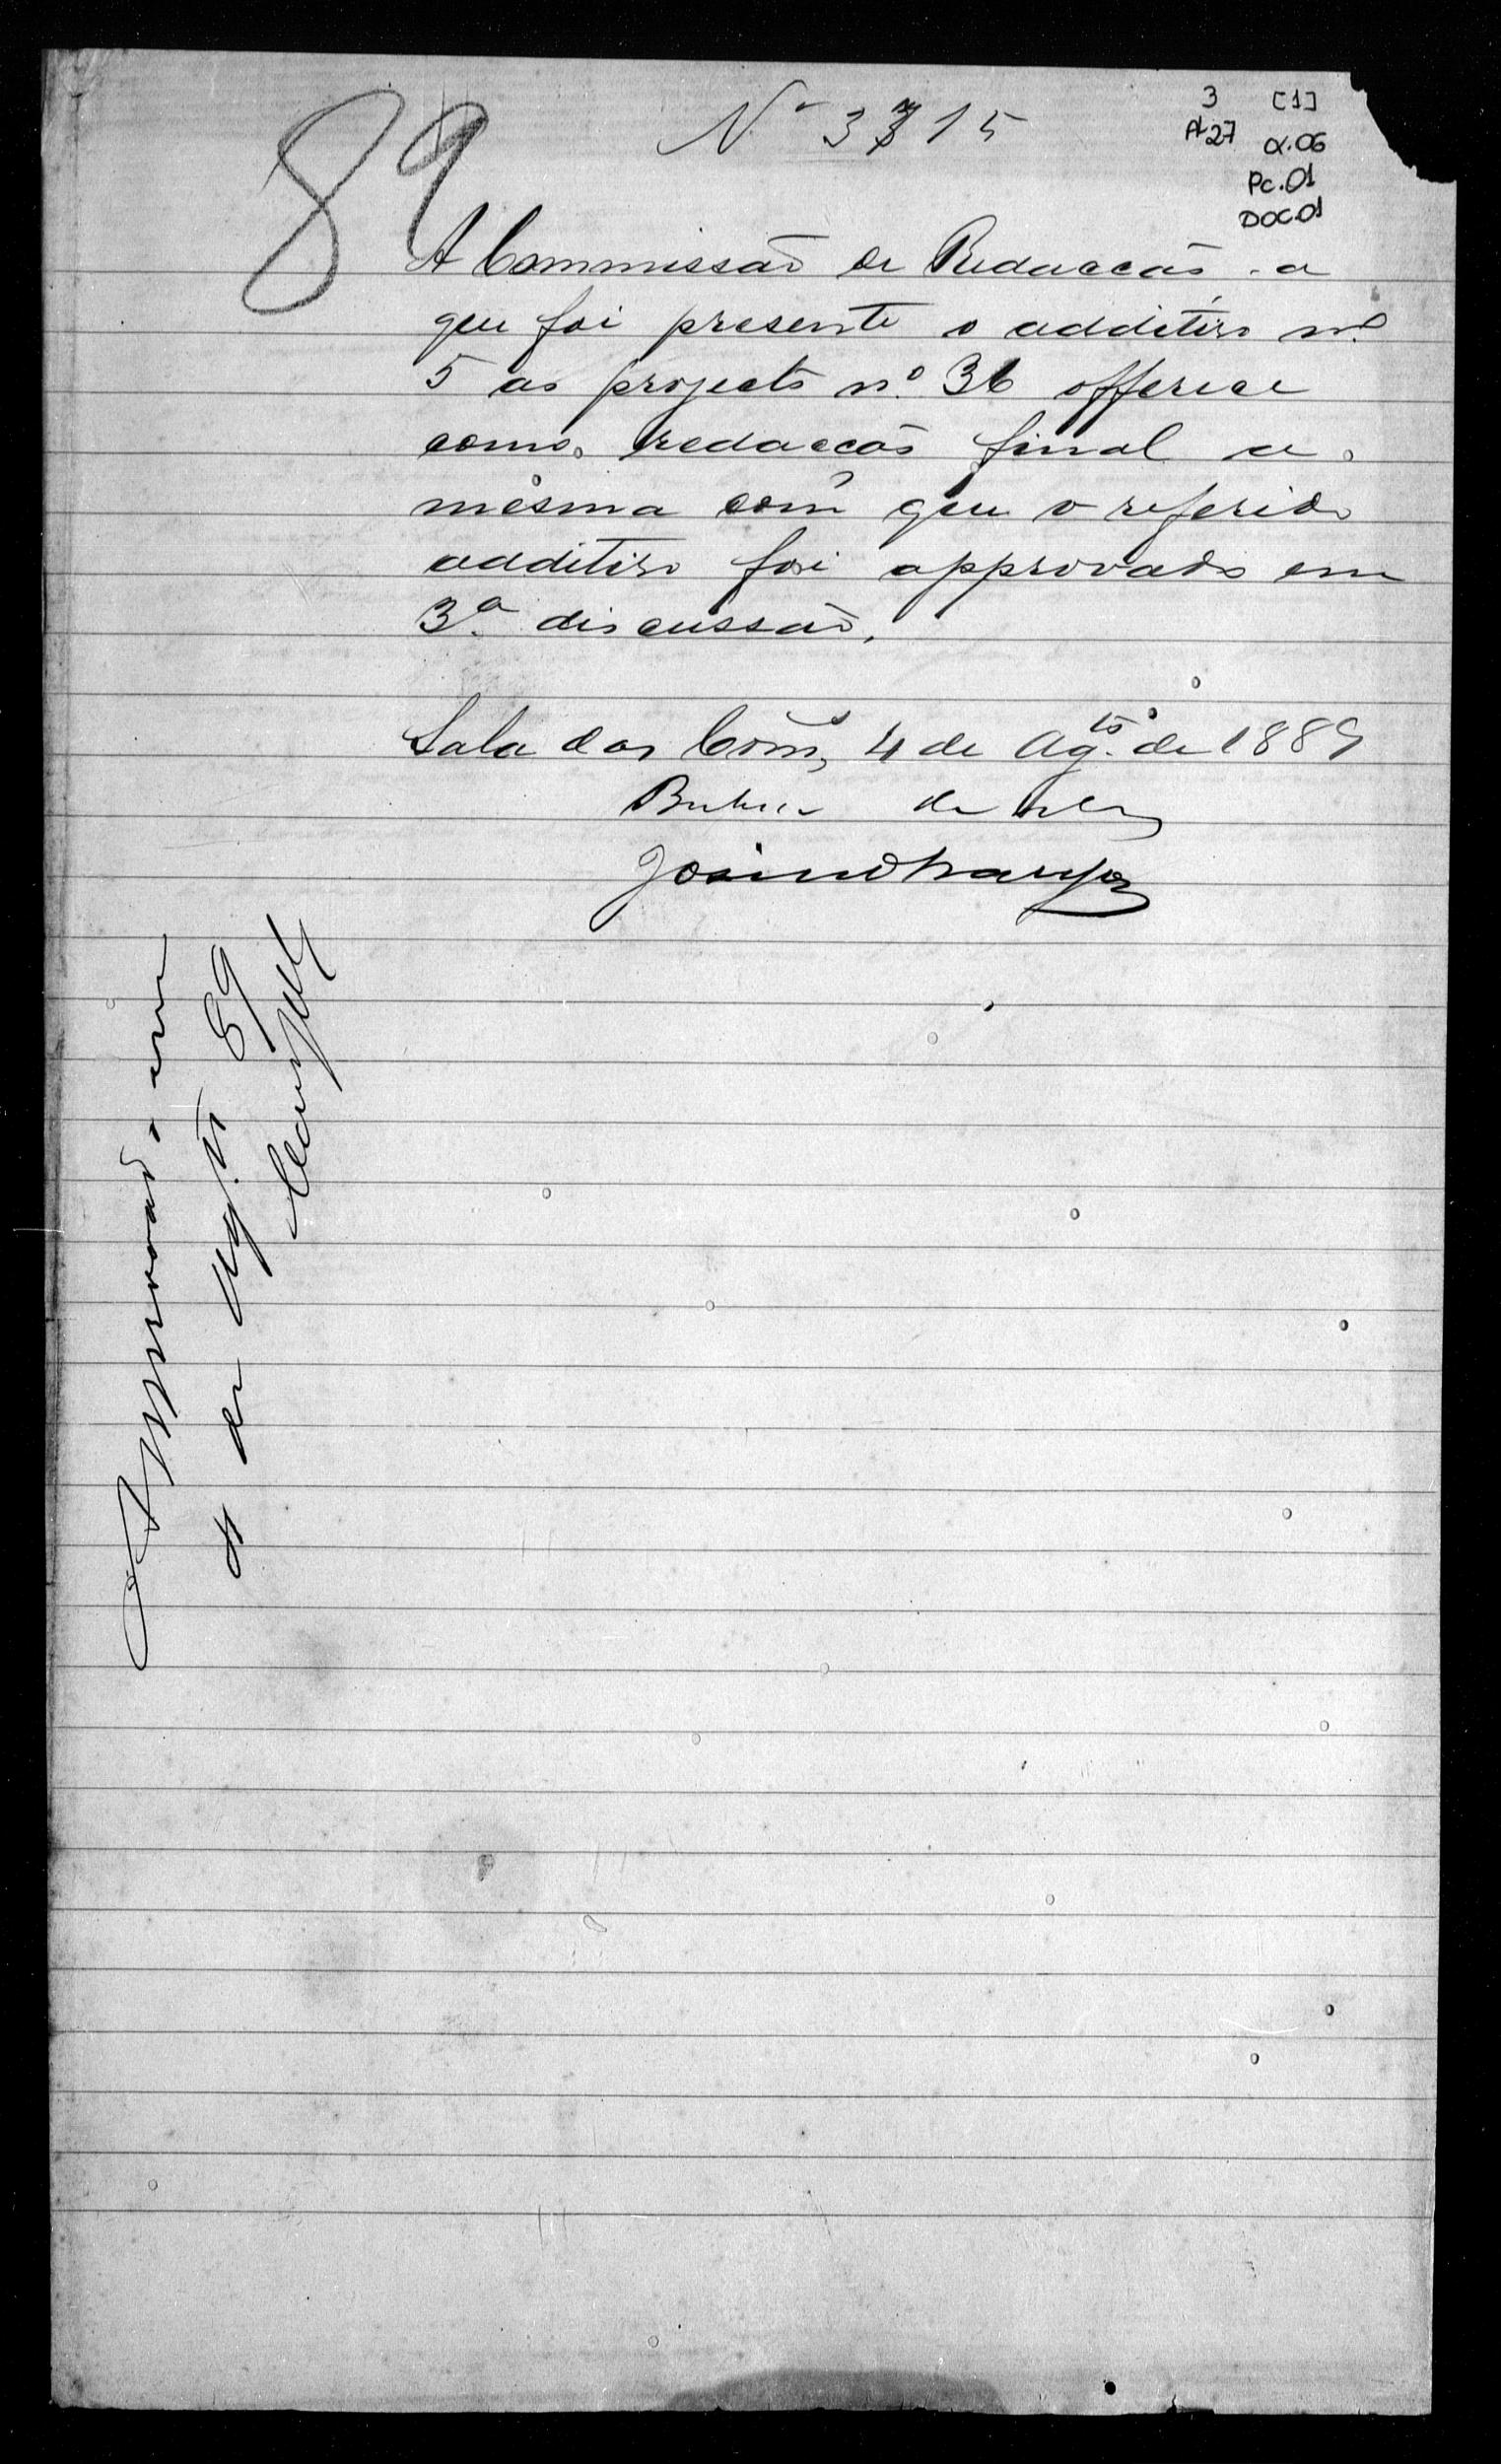 89
Nº 3715
3 [1]
A27 α.06
Pc.01
Doc.01
A Commissão de Redacção a
que foi presente o additivo nº
5 ao projecto nº 36 offerece
como redacção final a
mesma com que o referido
additivo foi approvado em
3ª discussão.
Sala das Com̃s, 4 de Agto de 1889
Approvado em
4 de Agto 89